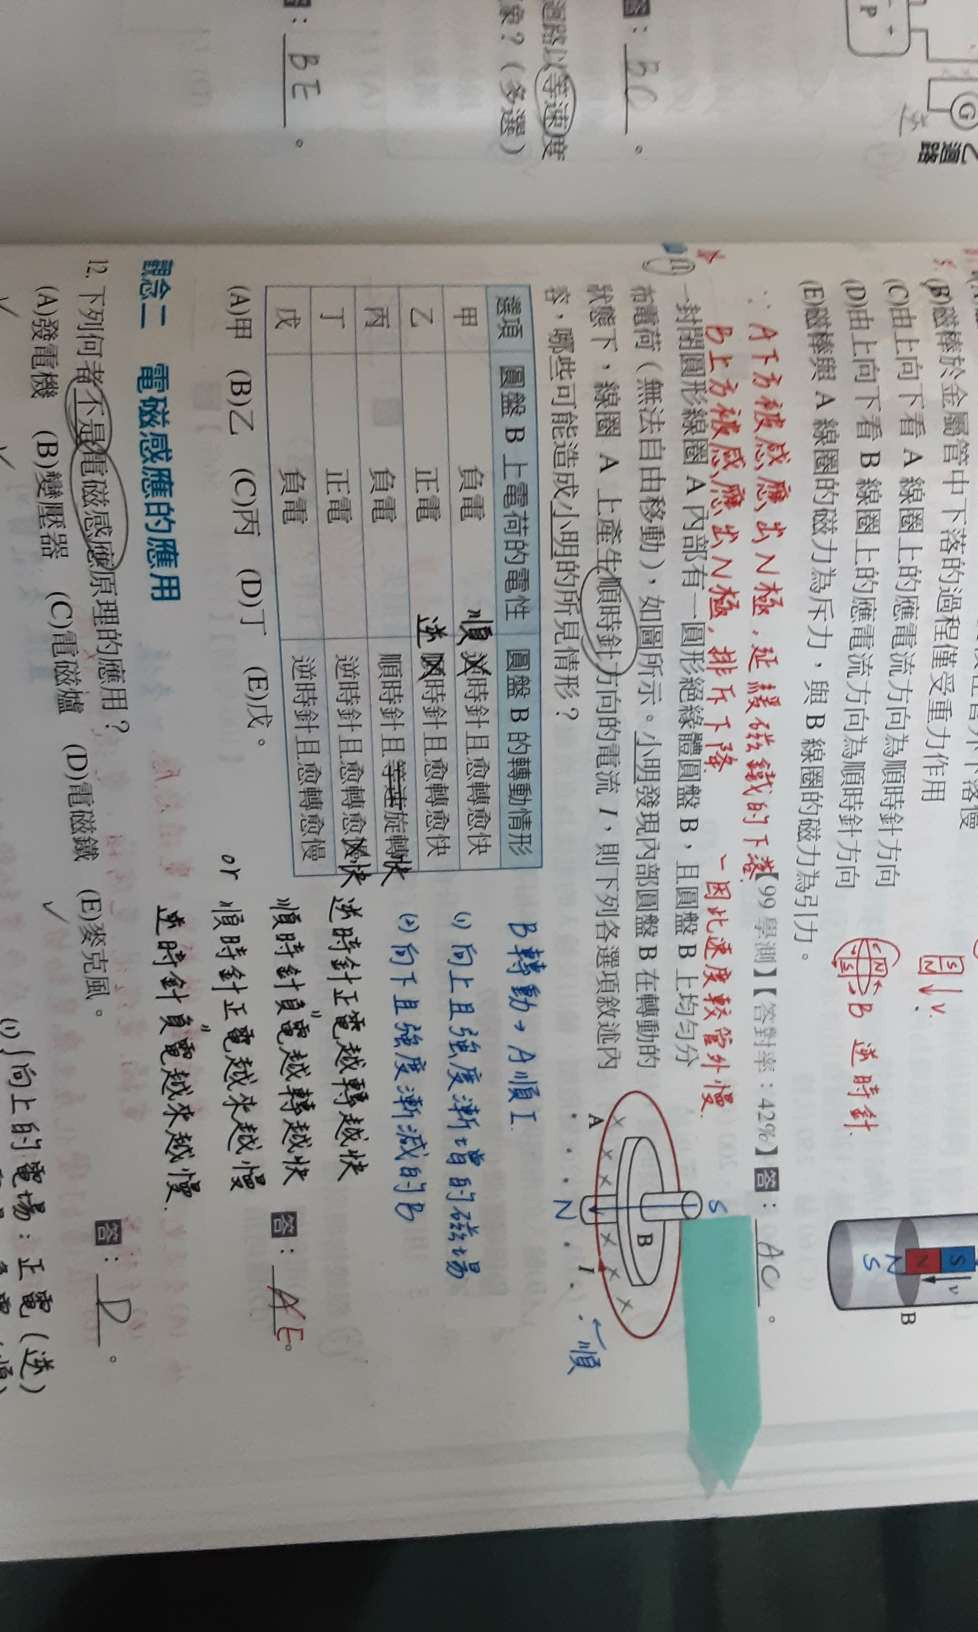 P
G
乙迴路
答：BC。
迴路以等速度
象？（多選）
答：BE。
(B)磁棒於金屬管中下落的過程僅受重力作用
(C)由上向下看 A 線圈上的應電流方向為順時針方向
(D)由上向下看 B 線圈上的應電流方向為順時針方向
(E)磁棒與 A 線圈的磁力為斥力，與 B 線圈的磁力為引力。
【99 學測】【答對率：42%】答：AC。
S
N
v
N
S
B 逆時針
S
N
v
N
S
B
∵ A下方被感應出N極，延緩磁鐵的下落
B上方被感應出N極，排斥下降
因此速度較管外慢
11 一封閉圓形線圈 A 內部有一圓形絕緣體圓盤 B，且圓盤 B 上均勻分
布電荷（無法自由移動），如圖所示。小明發現內部圓盤 B 在轉動的
狀態下，線圈 A 上產生順時針方向的電流 I，則下列各選項敘述內
容，哪些可能造成小明的所見情形？
S
B
A
I
N
順
選項 圓盤 B 上電荷的電性 圓盤 B 的轉動情形
甲 負電 順逆時針且愈轉愈快
乙 正電 逆順時針且愈轉愈快
丙 負電 順時針且等速旋轉快
丁 正電 逆時針且愈轉愈慢快
戊 負電 逆時針且愈轉愈慢
(A)甲 (B)乙 (C)丙 (D)丁 (E)戊。
B轉動→A順I
(1) 向上且強度漸增的磁場
(2) 向下且強度漸減的B
逆時針正電越轉越快
順時針負電越轉越快
or 順時針正電越來越慢
逆時針負電越來越慢
答：AE。
觀念二 電磁感應的應用
12. 下列何者不是電磁感應原理的應用？
(A)發電機 (B)變壓器 (C)電磁爐 (D)電磁鐵 (E)麥克風。
答：D。
(1) 向上的電場：正電(逆)